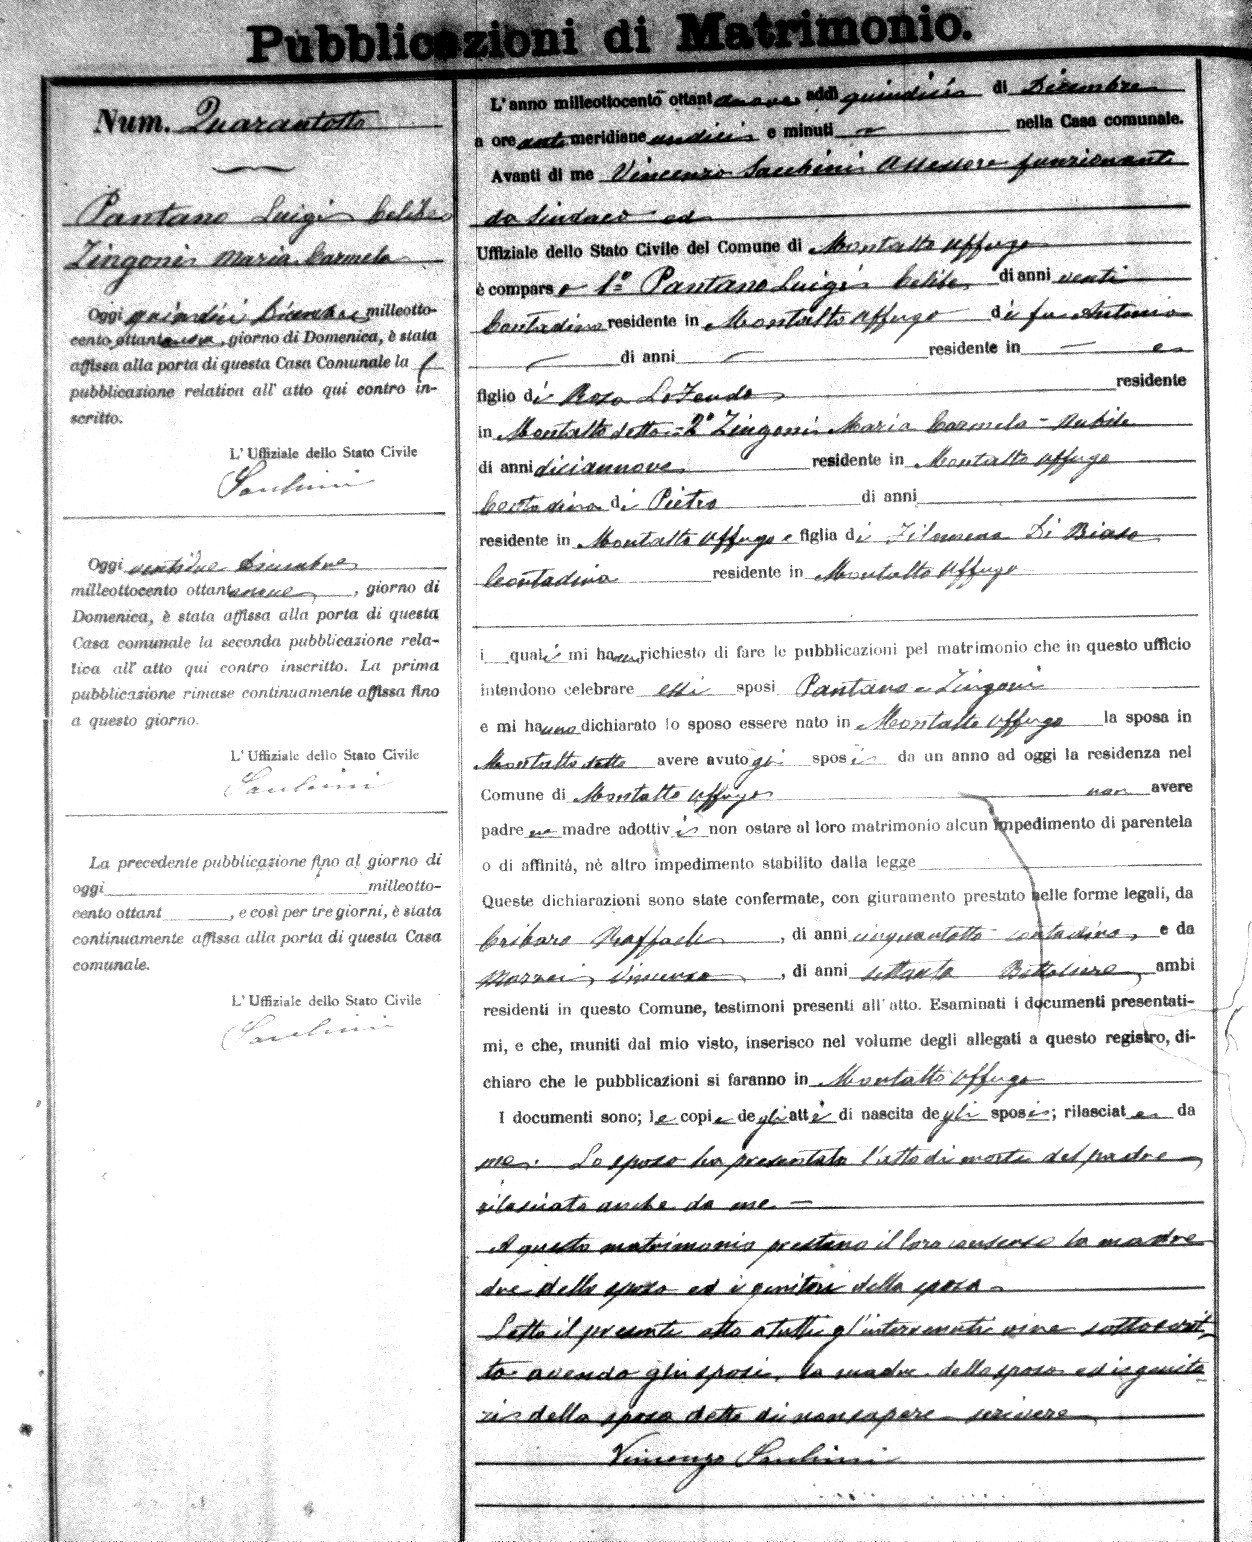 Pubblicazioni di Matrimonio.
Num. Quarantotto
Pantano Luigi Celibe
Zingoni Maria Carmela
Oggi quindici Dicembre milleotto-
cento ottantanove, giorno di Domenica, è stata
affissa alla porta di questa Casa Comunale la
pubblicazione relativa all' atto qui contro in-
scritto.
L' Uffiziale dello Stato Civile
Sacchini
Oggi ventidue Dicembre
milleottocento ottantanove, giorno di
Domenica, è stata affissa alla porta di questa
Casa comunale la seconda pubblicazione rela-
tiva all' atto qui contro inscritto. La prima
pubblicazione rimase continuamente affissa fino
a questo giorno.
L' Uffiziale dello Stato Civile
Sacchini
La precedente pubblicazione fino al giorno di
oggi milleotto-
cento ottant , e così per tre giorni, è stata
continuamente affissa alla porta di questa Casa
comunale.
L' Uffiziale dello Stato Civile
Sacchini
L' anno milleottocento ottantanove addì quindici di Dicembre
a ore antemeridiane undici e minuti nella Casa comunale.
Avanti di me Vincenzo Sacchini Assessore funzionante
da Sindaco ed
Uffiziale dello Stato Civile del Comune di Montalto Uffugo
è comparso 1º Pantano Luigi Celibe, di anni venti
Contadino residente in Montalto Uffugo di fu Antonio
di anni residente in e
figlio di Rosa Lo Feudo residente
in Montalto detto - 2º Zingoni Maria Carmela - nubile
di anni diciannove residente in Montalto Uffugo
Contadina di Pietro di anni
residente in Montalto Uffugo e figlia di Filomena Di Biaso
Contadina residente in Montalto Uffugo
i quali mi hanno richiesto di fare le pubblicazioni pel matrimonio che in questo ufficio
intendono celebrare essi sposi Pantano e Zingoni
e mi hanno dichiarato lo sposo essere nato in Montalto Uffugo la sposa in
Montalto detto avere avuto gli sposi da un anno ad oggi la residenza nel
Comune di Montalto Uffugo non avere
padre ne madre adottivi non ostare al loro matrimonio alcun impedimento di parentela
o di affinità, nè altro impedimento stabilito dalla legge
Queste dichiarazioni sono state confermate, con giuramento prestato nelle forme legali, da
Cribaro Raffaele, di anni cinquantotto contadino, e da
Vincenzo, di anni settanta Bettoliere, ambi
residenti in questo Comune, testimoni presenti all' atto. Esaminati i documenti presentati-
mi, e che, muniti dal mio visto, inserisco nel volume degli allegati a questo registro, di-
chiaro che le pubblicazioni si faranno in Montalto Uffugo
I documenti sono; le copie degli atti di nascita degli sposi; rilasciate da
me. Lo sposo ha presentato l'atto di morte del padre
rilasciato anche da me -
A questo matrimonio prestano il loro consenso la madre
dre dello sposo ed i genitori della sposa -
Letto il presente atto a tutti gl'intervenuti viene sottoscrit
to avendo gli sposi, la madre dello sposo ed i genito
ri della sposa detto di non sapere scrivere
Vincenzo Sacchini